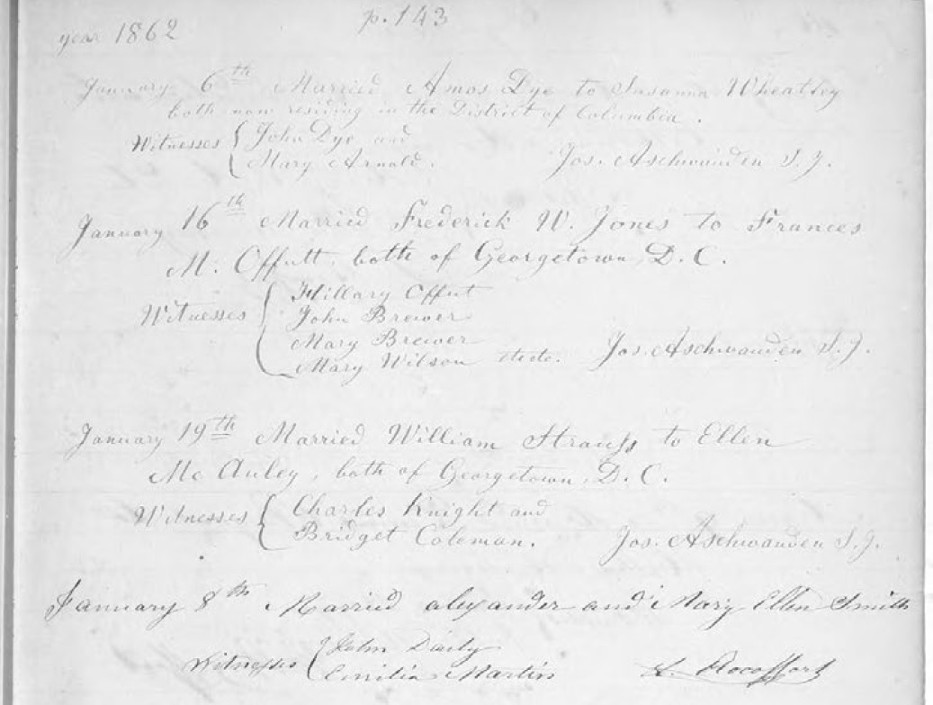 year 1862 p. 143
January 6th Married Amos Dye to Susanna Wheatley
both now residing in the District of Columbia.
Witnesses { John Dye and
Mary Arnald. Jos. Aschwanden S.J.
January 16th Married Frederick W. Jones to Frances
M. Offutt, both of Georgetown, D.C.
Witnesses { Hillary Offut
John Brewer
Mary Brewer
Mary Wilson etc etc. Jos. Aschwanden S.J.
January 19th Married William Strauss to Ellen
Mc Auley, both of Georgetown, D.C.
Witnesses { Charles Knight and
Bridget Coleman. Jos. Aschwanden S.J.
January 8th Married alexander and Mary Ellen Smith
Witnesses { John Daily
Emilia Martin